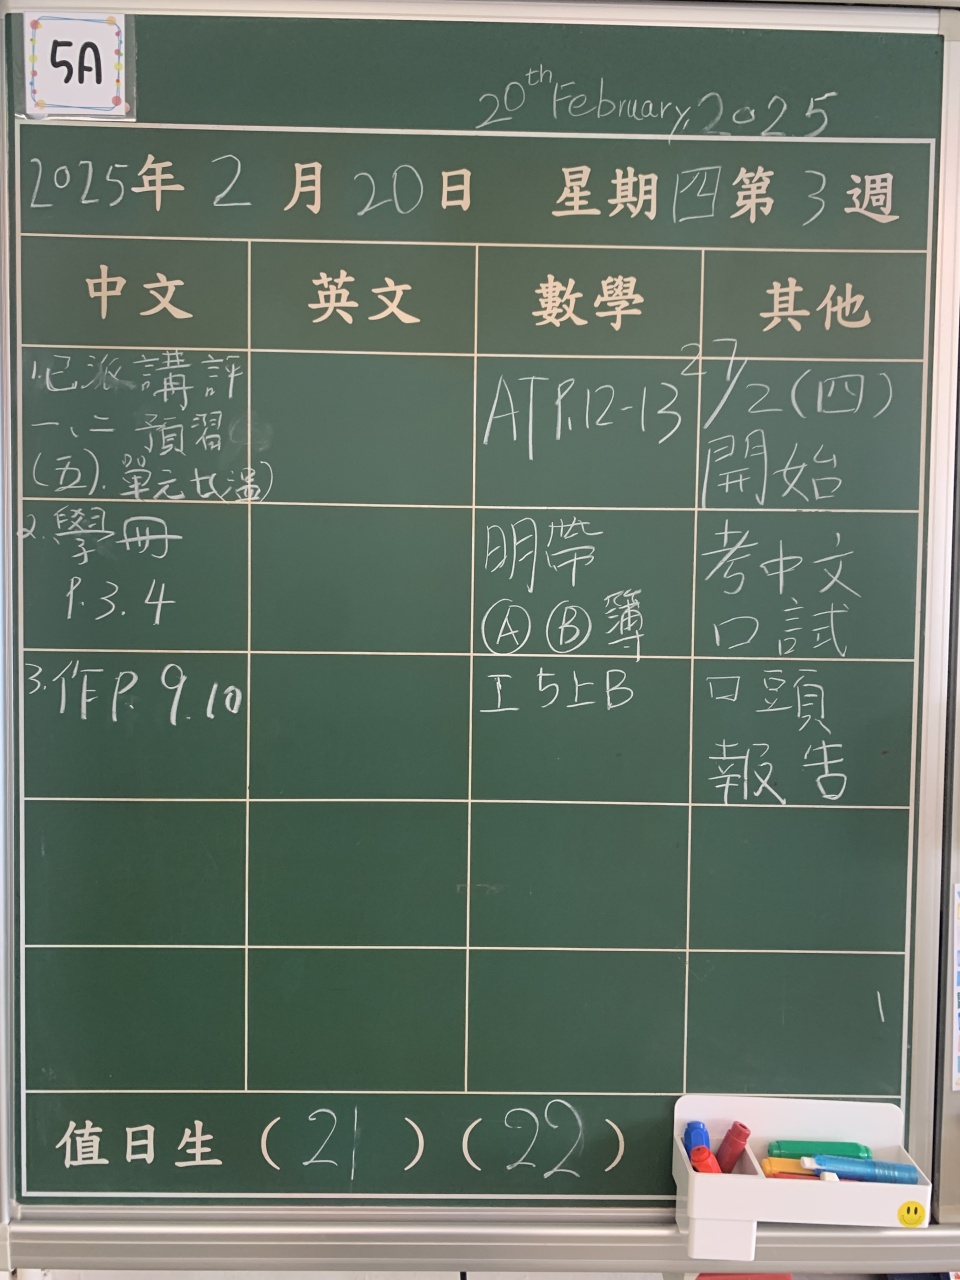 5A
20th February, 2025
2025年 2 月 20 日 星期 四 第 3 週
中文
英文
數學
其他
1.已派講評
一、二 預習
(五). 單元七溫)
2.學冊
P.3.4
3.作P. 9.10
AT P.12-13
明帶
Ⓐ Ⓑ 簿
工 5上B
27/2(四)
開始
考中文
口試
口頭
報告
值日生 (21) (22)